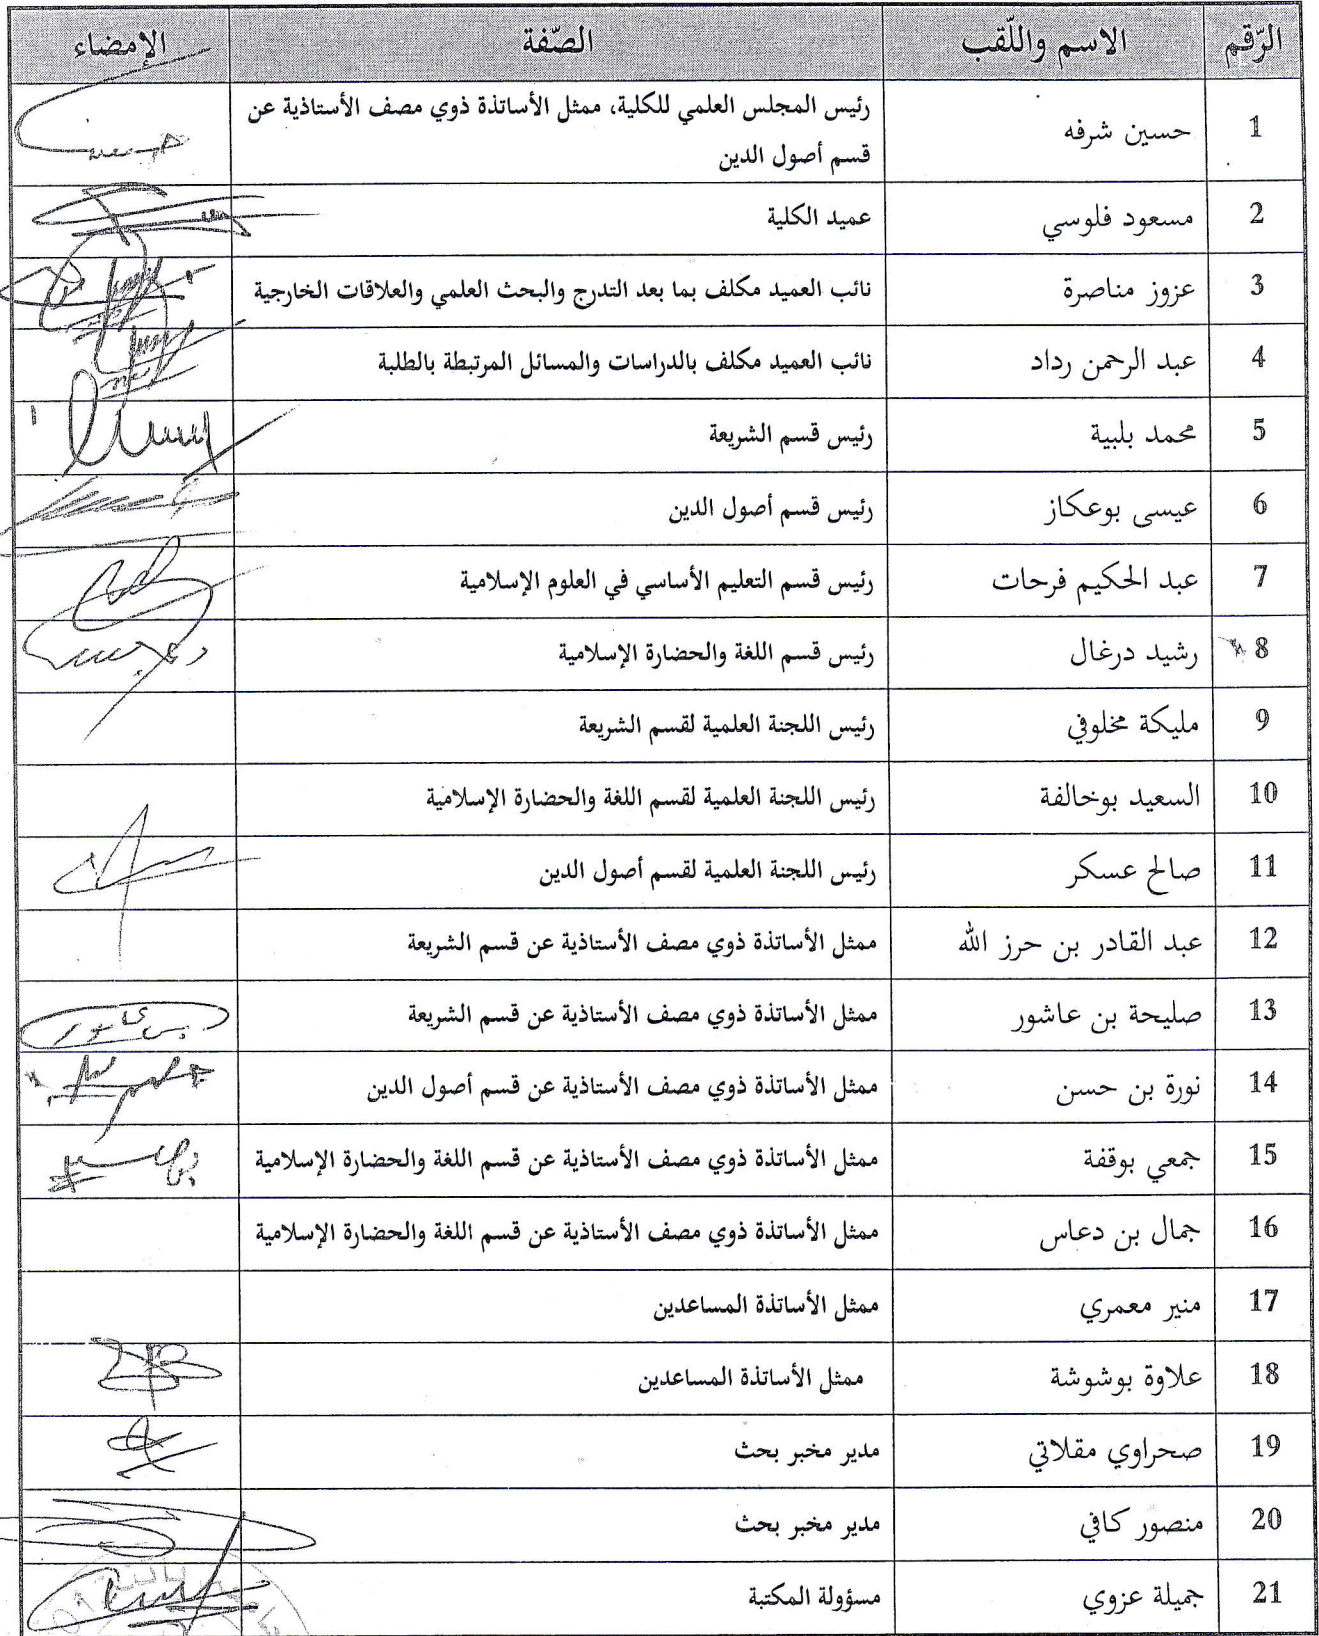 الرّقم الاسم واللّقب الصّفة الإمضاء
1 حسين شرفه رئيس المجلس العلمي للكلية، ممثل الأساتذة ذوي مصف الأستاذية عن
قسم أصول الدين
2 مسعود فلوسي عميد الكلية
3 عزوز مناصرة نائب العميد مكلف بما بعد التدرج والبحث العلمي والعلاقات الخارجية
4 عبد الرحمن رداد نائب العميد مكلف بالدراسات والمسائل المرتبطة بالطلبة
5 محمد بلبية رئيس قسم الشريعة
6 عيسى بوعكاز رئيس قسم أصول الدين
7 عبد الحكيم فرحات رئيس قسم التعليم الأساسي في العلوم الإسلامية
8 رشيد درغال رئيس قسم اللغة والحضارة الإسلامية
9 مليكة مخلوفي رئيس اللجنة العلمية لقسم الشريعة
10 السعيد بوخالفة رئيس اللجنة العلمية لقسم اللغة والحضارة الإسلامية
11 صالح عسكر رئيس اللجنة العلمية لقسم أصول الدين
12 عبد القادر بن حرز الله ممثل الأساتذة ذوي مصف الأستاذية عن قسم الشريعة
13 صليحة بن عاشور ممثل الأساتذة ذوي مصف الأستاذية عن قسم الشريعة
14 نورة بن حسن ممثل الأساتذة ذوي مصف الأستاذية عن قسم أصول الدين
15 جمعي بوقفة ممثل الأساتذة ذوي مصف الأستاذية عن قسم اللغة والحضارة الإسلامية
16 جمال بن دعاس ممثل الأساتذة ذوي مصف الأستاذية عن قسم اللغة والحضارة الإسلامية
17 منير معمري ممثل الأساتذة المساعدين
18 علاوة بوشوشة ممثل الأساتذة المساعدين
19 صحراوي مقلاتي مدير مخبر بحث
20 منصور كافي مدير مخبر بحث
21 جميلة عزوي مسؤولة المكتبة